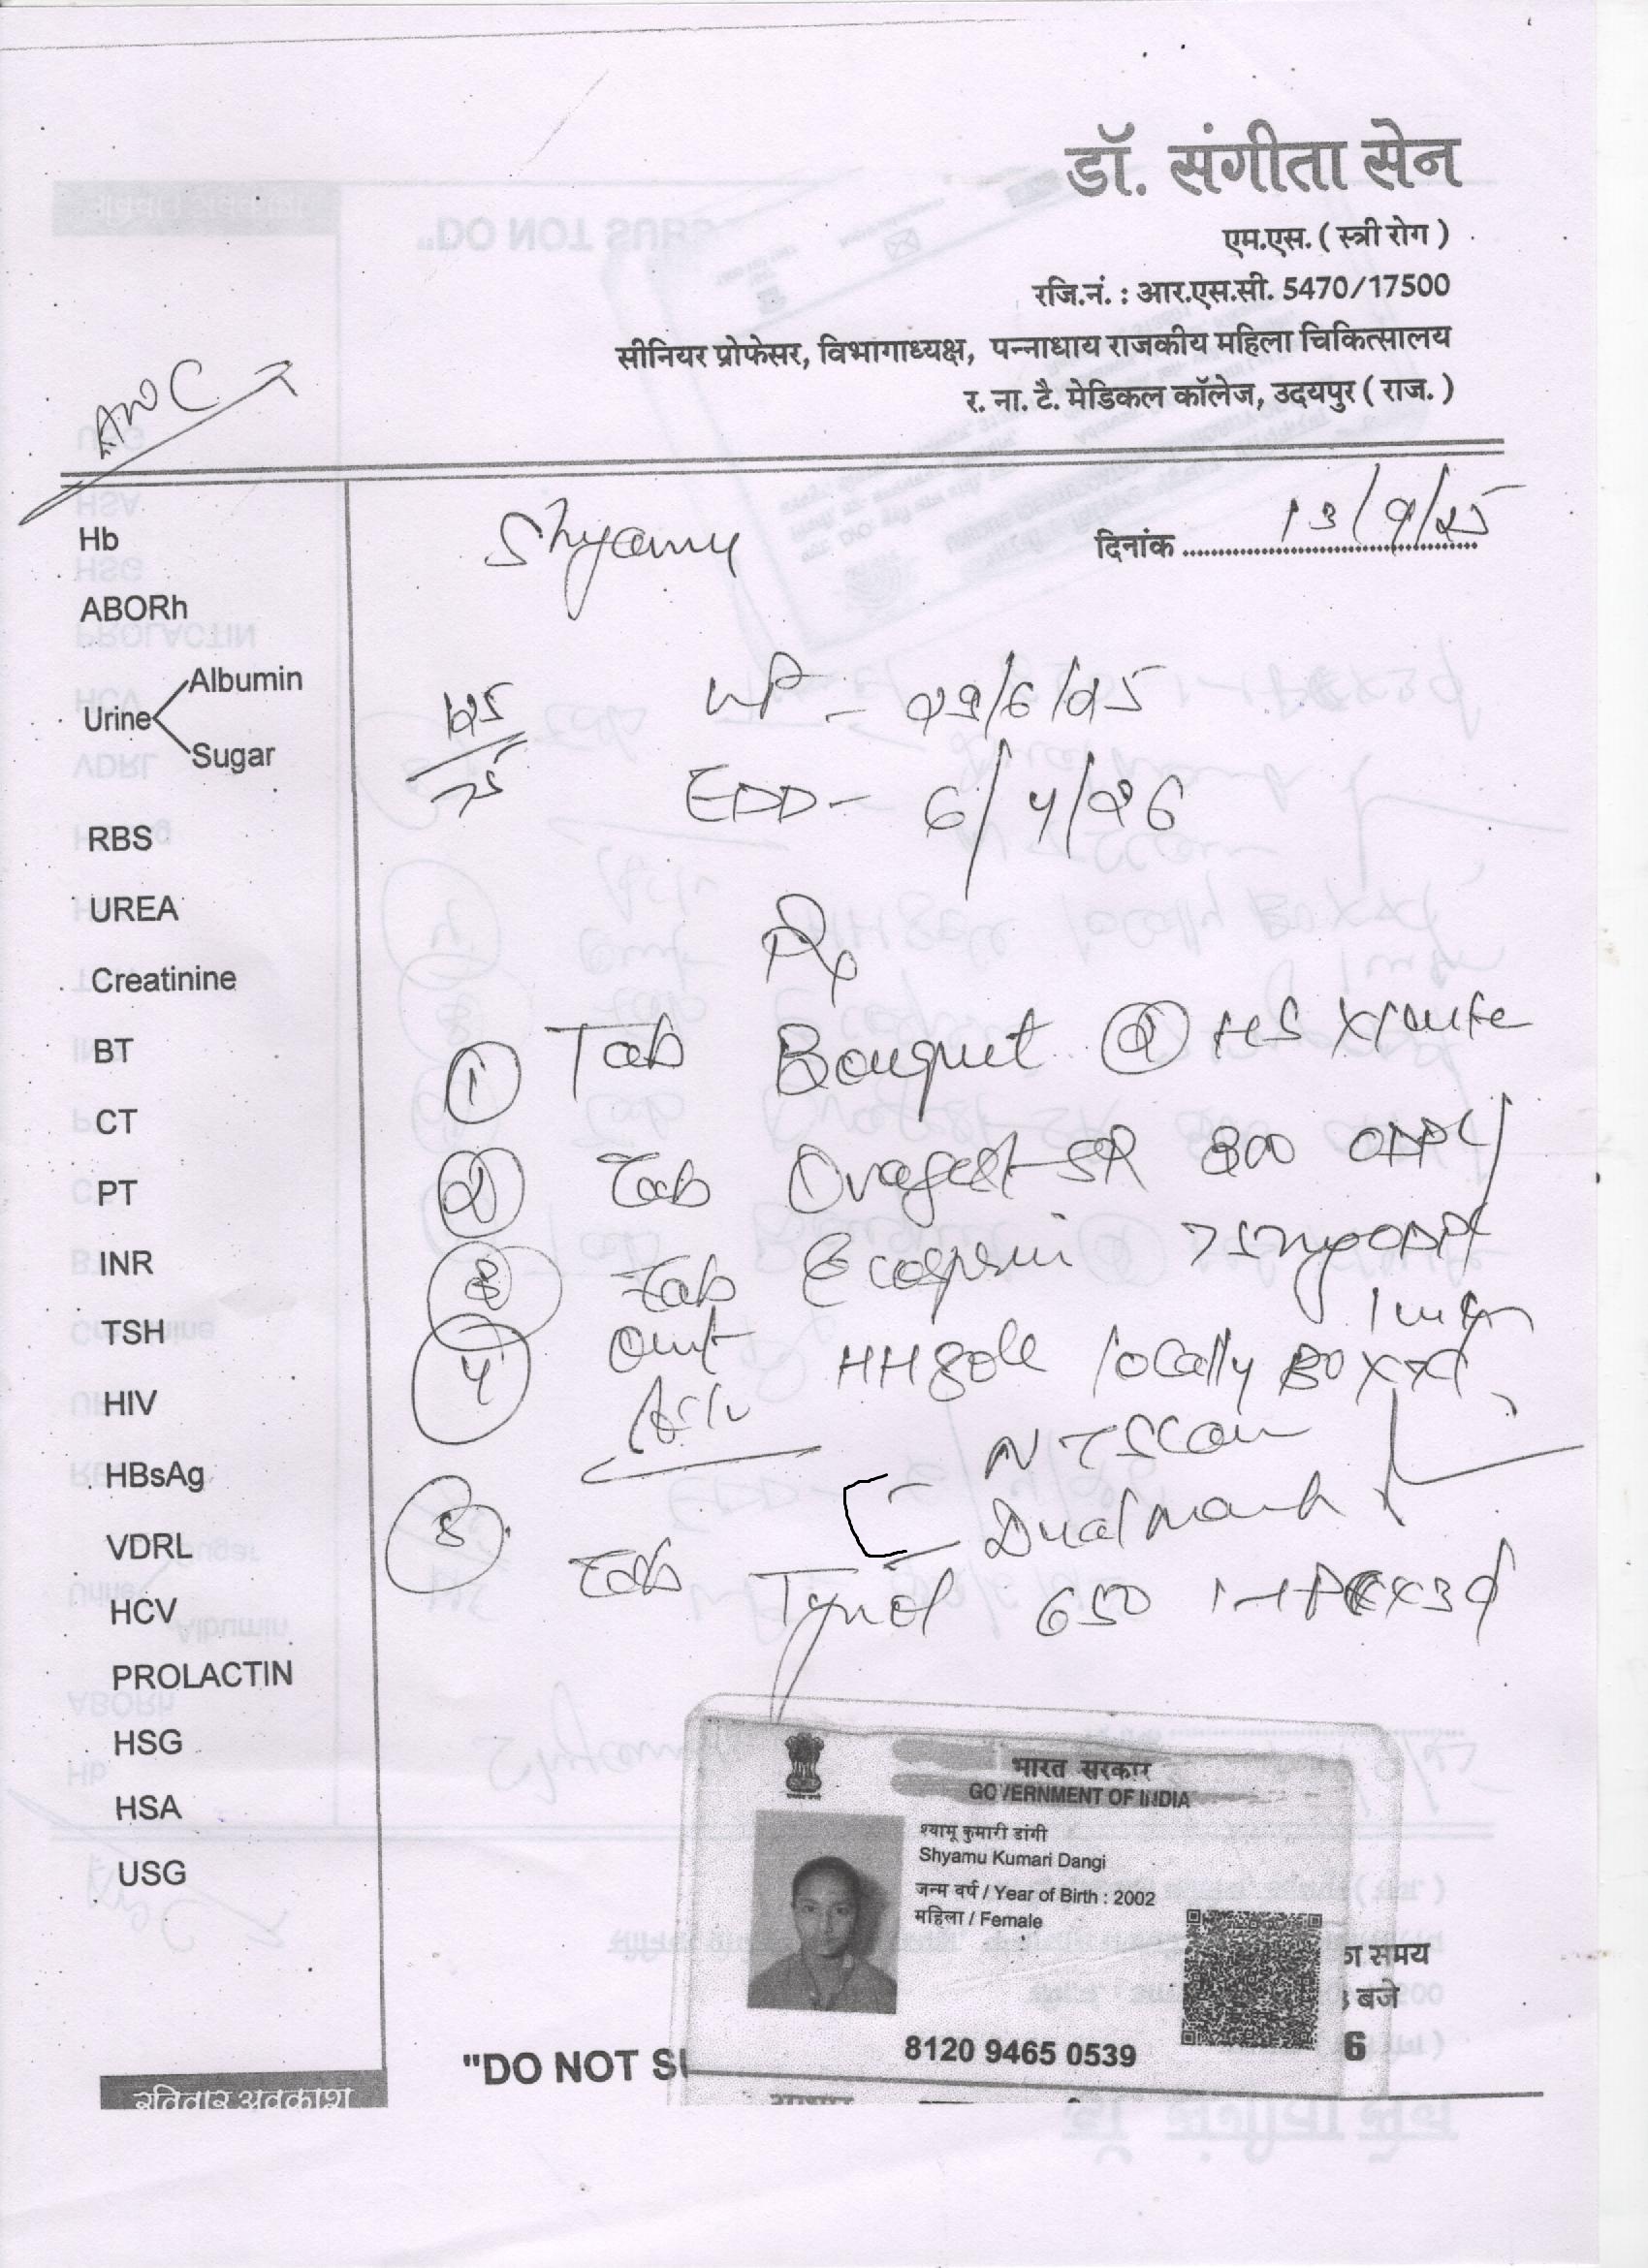 डॉ. संगीता सेन
एम.एस. ( स्त्री रोग )
रजि.नं. : आर.एस.सी. 5470/17500
सीनियर प्रोफेसर, विभागाध्यक्ष, पन्नाधाय राजकीय महिला चिकित्सालय
र. ना. टै. मेडिकल कॉलेज, उदयपुर ( राज. )
ANC
Shyamu
दिनांक 13/9/25
Hb
ABORh
Urine
Albumin
Sugar
RBS
UREA
Creatinine
BT
CT
PT
INR
TSH
HIV
HBsAg
VDRL
HCV
PROLACTIN
HSG
HSA
USG
रविवार अवकाश
125/75
LMP - 29/6/25
EDD - 6/4/26
Rx
① Tab Bouquet HS
② Tab SR 300
③ Tab Ecosprin 75mg
④ Oint HHsole locally
Adv
NT Scan
Dual marker
5 Tab 650 x 3d
भारत सरकार
GOVERNMENT OF INDIA
श्यामू कुमारी डांगी
Shyamu Kumari Dangi
जन्म वर्ष / Year of Birth : 2002
महिला / Female
8120 9465 0539
समय
बजे
6
"DO NOT